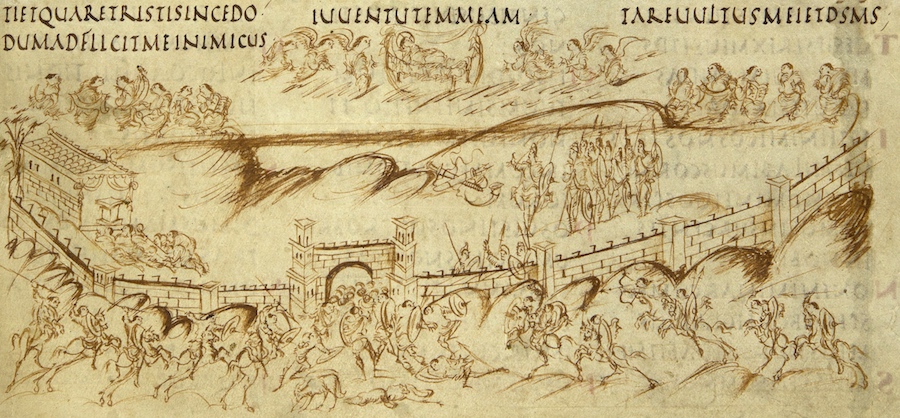 TIETQUARETRISTISINCEDO
DUMADFLIGITMEINIMICUS
IUUENTUTEMMEAM
TAREUULTUSMEIETDSMS